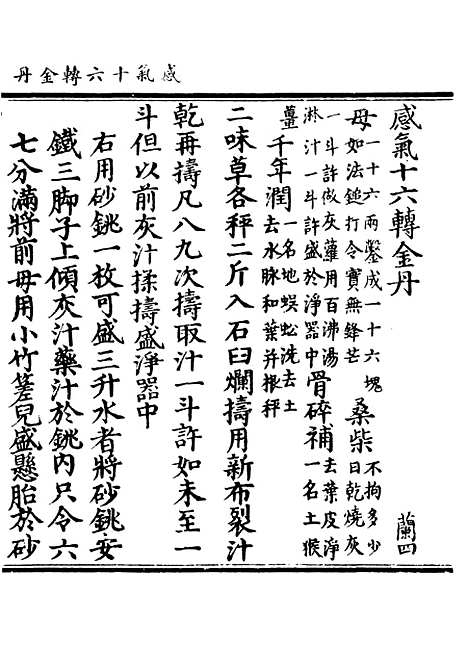 感氣十六轉金丹
感氣十六轉金丹 蘭四
母 一十六兩鑿成一十六塊
如法鎚打令實無鋒芒
桑柴 不拘多少
日乾燒灰
一斗許做灰用百沸湯
淋汁一斗許盛於淨器中
骨碎補 去葉皮淨
一名土猴
薑
千年潤 一名地蜈蚣洗去土
去水脉和葉并根秤
二味草各秤二斤入石臼爛擣用新布裂汁
乾再擣凡八九次擣取汁一斗許如未至一
斗但以前灰汁揉擣盛淨器中
右用砂銚一枚可盛三升水者將砂銚安
鐵三脚子上傾灰汁藥汁於銚內只令六
七分滿將前母用小竹兒盛懸胎於砂